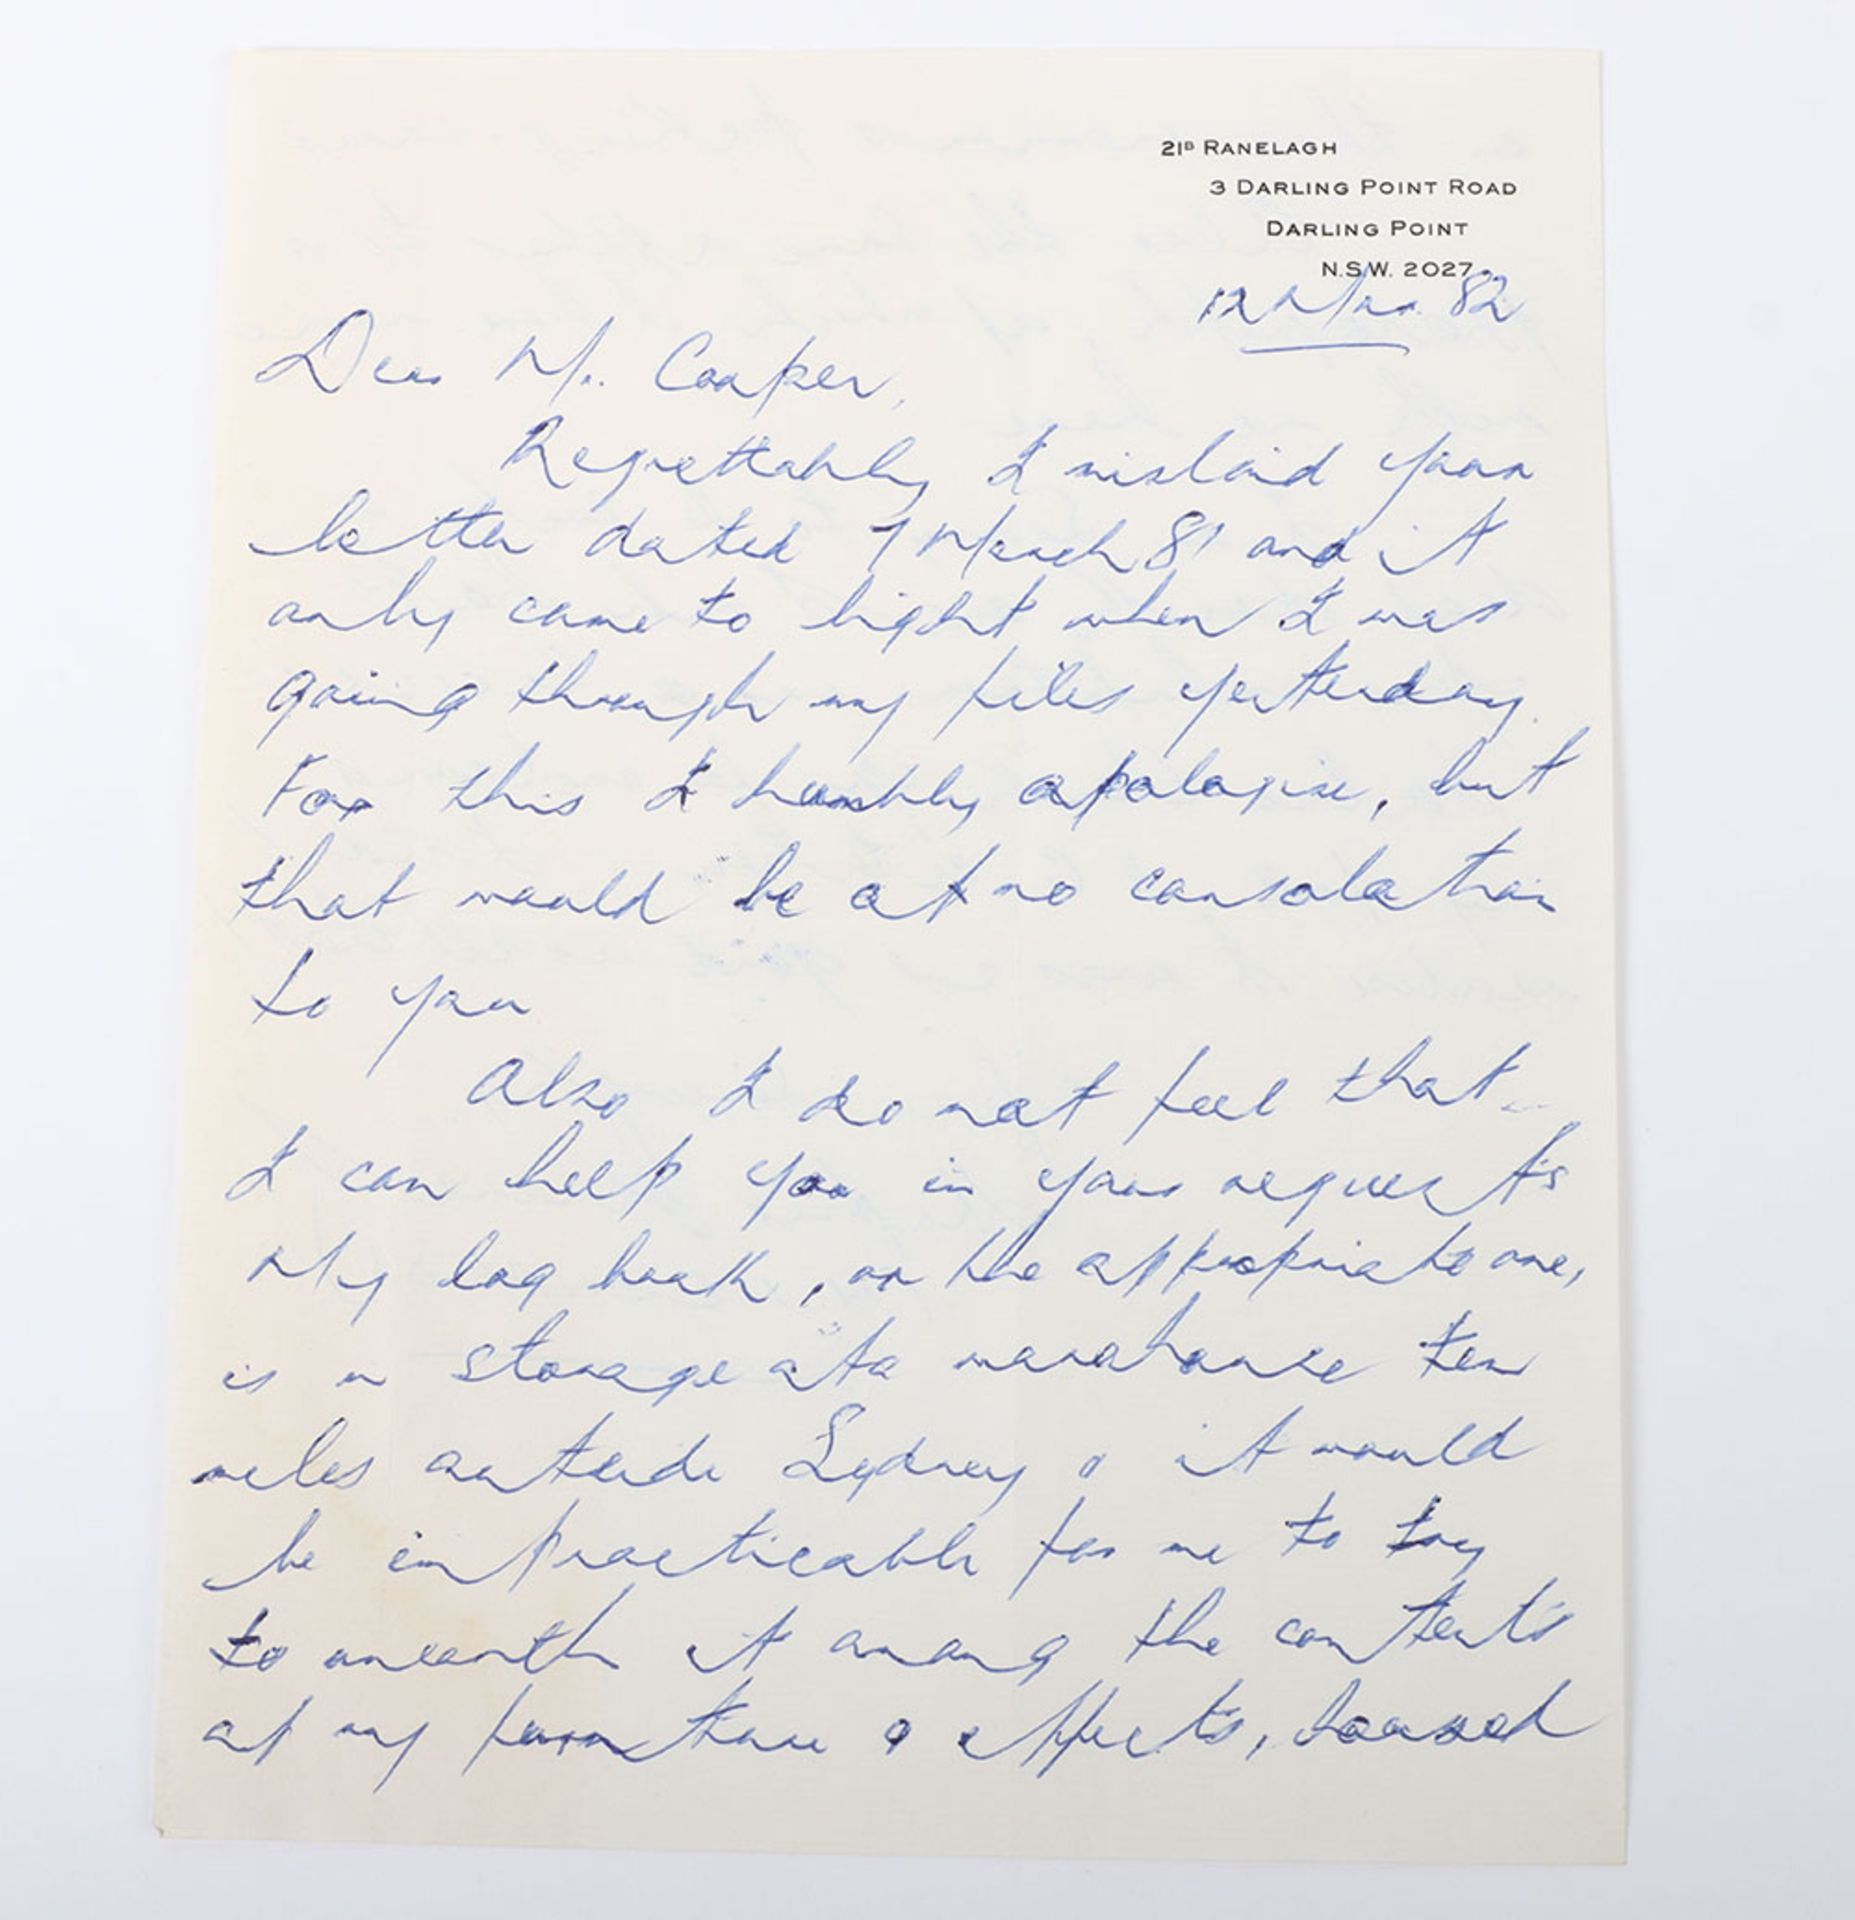 21B RANELAGH
3 DARLING POINT ROAD
DARLING POINT
N.S.W. 2027
12 Mar. 82
Dear Mr. Cooper,
Regrettably I mislaid your
letter dated 7 March 81 and it
only came to light when I was
going through my files yesterday.
For this I humbly apologise, but
that would be of no consolation
to you
Also I do not feel that
I can help you in your requests
My log book, or the appropriate one,
is in storage at a warehouse ten
miles outside Sydney & it would
be impracticable for me to try
to unearth it among the contents
of my furniture & effects, housed